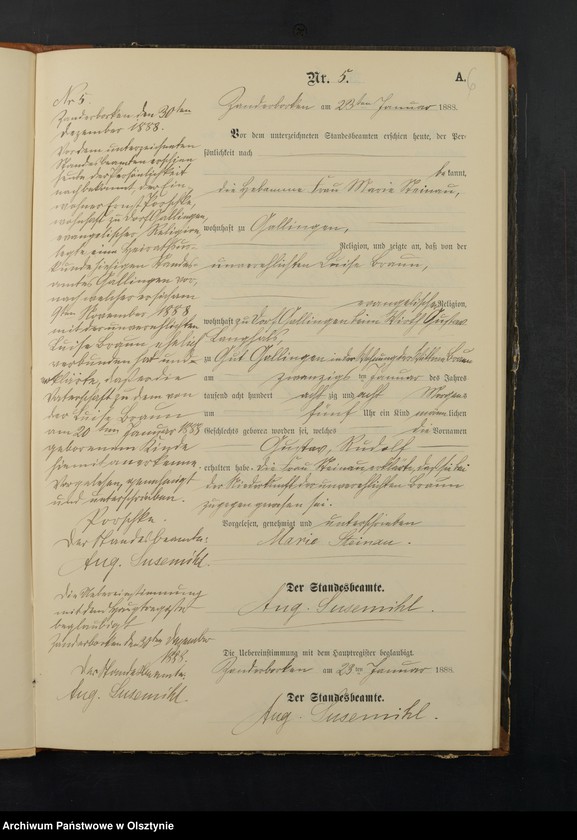 Nr. 5.
A.
6
Zanderborken am 23ten Januar 1888.
Vor dem unterzeichneten Standesbeamten erschien heute, der Per-
sönlichkeit nach
bekannt,
die Hebamme Frau Marie Steinau,
wohnhaft zu Gallingen,
Religion, und zeigte an, daß von der
unverehelichten Luise Braun,
evangelischer Religion,
wohnhaft zu Dorf Gallingen beim Wirth Gustav
Langhals
zu Gut Gallingen in der Behausung der
am zwanzigsten Januar des Jahres
tausend acht hundert achtzig und acht Morgens
um fünf Uhr ein Kind männlichen
Geschlechts geboren worden sei, welches die Vornamen
Gustav, Rudolf
erhalten habe. Die Frau Steinau erklärte, daß sie bei
der Niederkunft der unverehelichten Braun
zugegen gewesen sei.
Vorgelesen, genehmigt und unterschrieben
Marie Steinau.
Der Standesbeamte.
Aug. Susemihl.
Die Uebereinstimmung mit dem Hauptregister beglaubigt.
Zanderborken am 23ten Januar 1888.
Der Standesbeamte.
Aug. Susemihl.
Nr 5.
Zanderborken den 30ten
Dezember 1888.
Vor dem unterzeichneten
Standesbeamten erschien
heute der Persönlichkeit
nach bekannt, der Ein-
wohner Ernst Porschke,
wohnhaft zu Dorf Gallingen,
evangelischer Religion
legte eine Heiraths-
urkunde hiesigen Standes-
amtes Gallingen vor,
nach welcher er sich am
9ten November 1888
mit der unverehelichten
Luise Braun ehelich
verbunden hat und
erklärte, daß er die
Vaterschaft zu dem von
der Luise Braun
am 20ten Januar 1888
geborenen Kinde
hiermit anerkenne.
Vorgelesen, genehmigt
und unterschrieben.
Porschke.
Der Standesbeamte:
Aug. Susemihl.
Die Uebereinstimmung
mit dem Hauptregister
beglaubigt
Zanderborken den 30ten Dezember
1888.
Der Standesbeamte,
Aug. Susemihl.
Archiwum Państwowe w Olsztynie